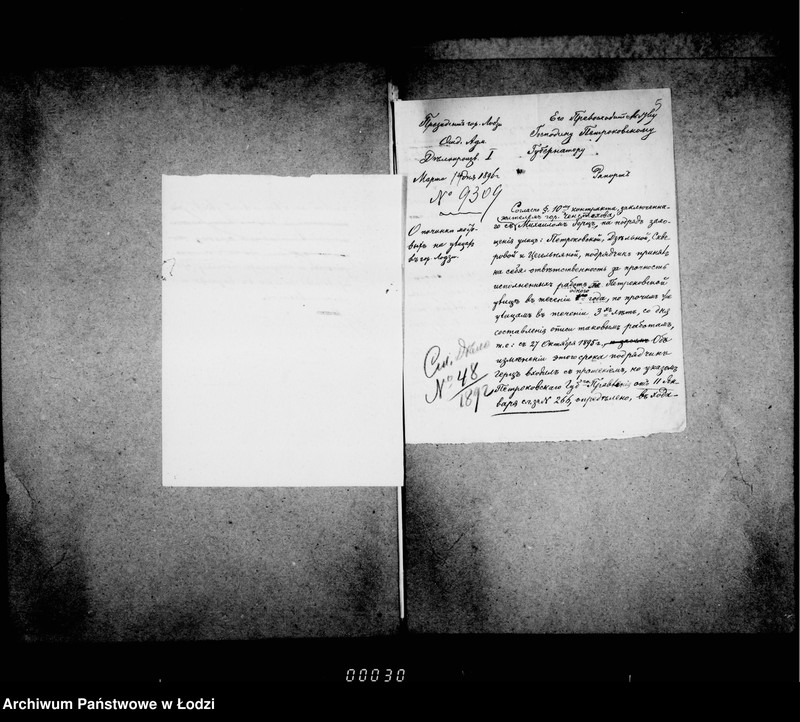 5
Президентъ гор. Лодзи
Отд. Адм.
Дѣлопроизв. I
Марта 14 дня 1896 г.
№ 9309
О починкѣ мостовыхъ на улицахъ
въ гор. Лодзи.
Его Превосходительству
Господину Петроковскому
Губернатору
Рапортъ
Согласно §. 10 контракта, заключенна-
го съ жителемъ гор. Ченстохова
Михаиломъ Герцъ, на подрядъ замо-
щенія улицъ: Петроковской, Дзѣльной, Скве-
ровой и Цегельняной, подрядчикъ принялъ
на себя отвѣтственность за прочность
исполненныхъ работъ по Петроковской
улицѣ въ теченіи одного года, по прочимъ же
улицамъ въ теченіи 3 лѣтъ, со дня
составленія описи таковымъ работамъ,
т. е: съ 27 Октября 1895 г., Объ
измѣненіи этого срока подрядчикъ
Герцъ входилъ съ прошеніемъ, но указомъ
Петроковскаго Губ. Правленія отъ 11 Ян-
варя с. г. за № 266, опредѣлено, въ хода-
См. Дѣло
№ 48
1892
00030
Archiwum Państwowe w Łodzi